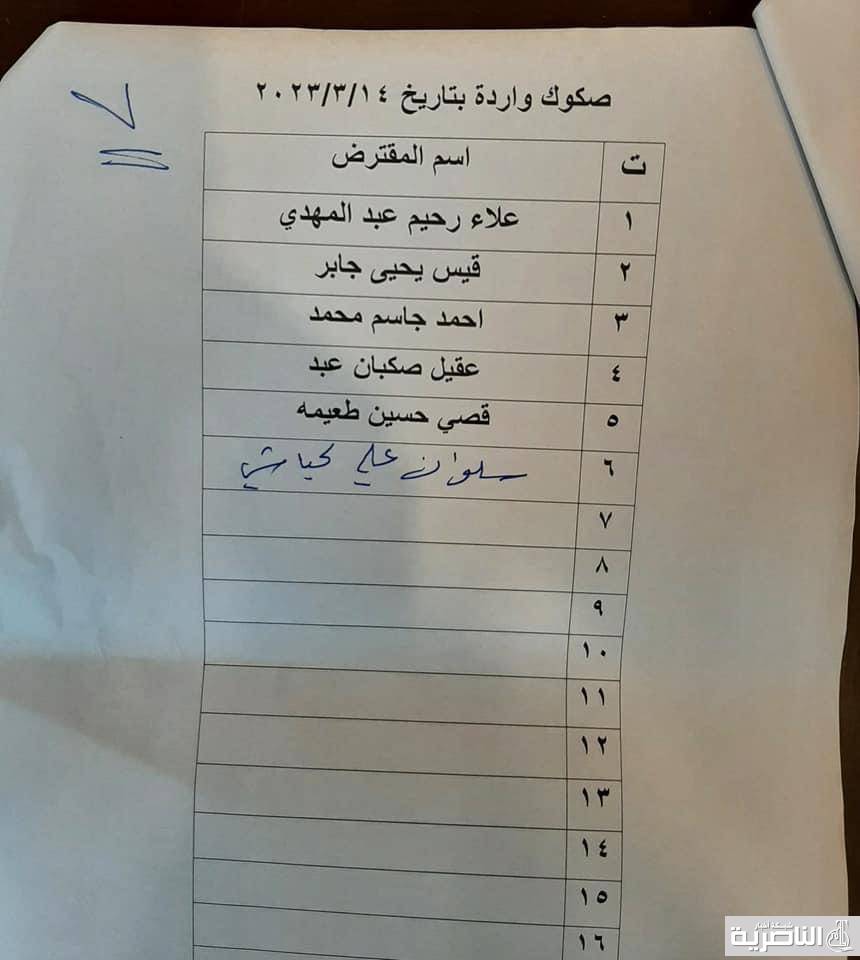 صكوك واردة بتاريخ ٢٠٢٣/٣/١٤
٧
ت اسم المقترض
١ علاء رحيم عبد المهدي
٢ قيس يحيى جابر
٣ احمد جاسم محمد
٤ عقيل صكبان عبد
٥ قصي حسين طعيمه
٦ سلوان علي
٧
٨
٩
١٠
١١
١٢
١٣
١٤
١٥
١٦
شبكة اخبار
الناصرية